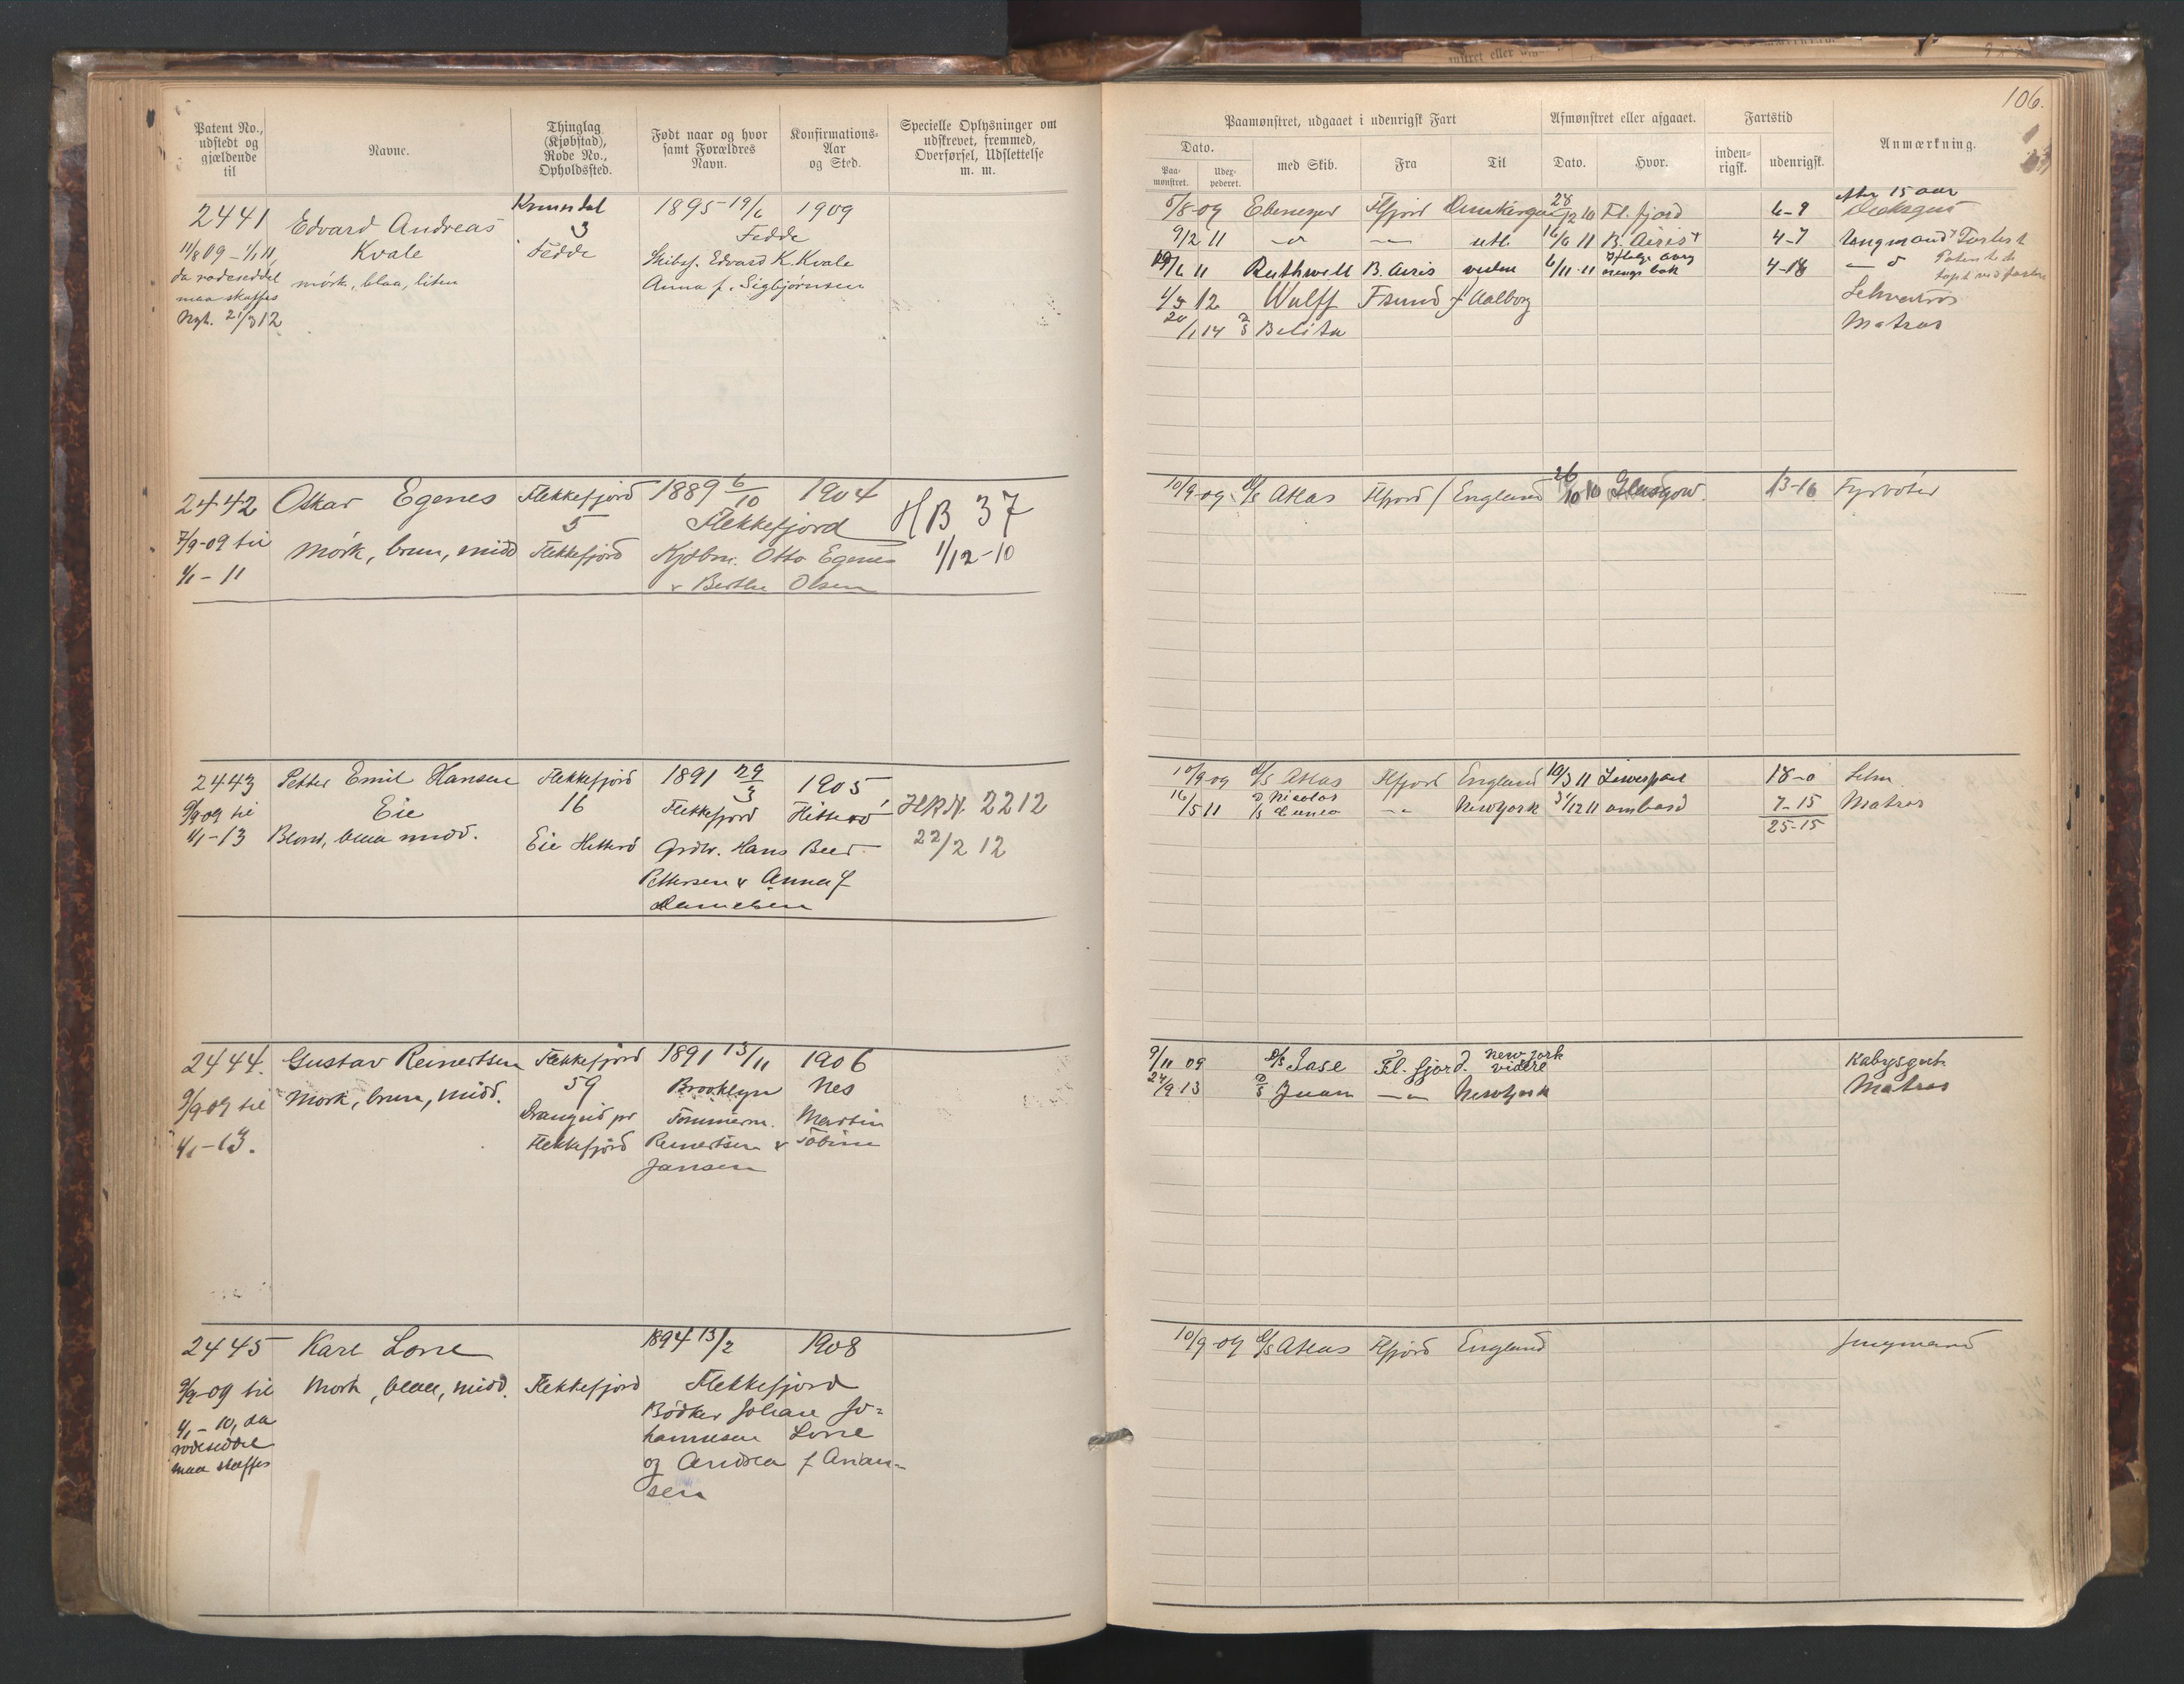 106.
Patent No., udstedt og gjældende til
Navne.
Thinglag (Kjøbstad), Rode No., Opholdssted.
Født naar og hvor samt Forældres Navn.
Konfirmations-Aar og Sted.
Specielle Oplysninger om udskrevet, fremmed, Overførsel, Udslettelse m. m.
Paamønstret, udgaaet i udenrigsk Fart
Afmønstret eller afgaaet.
Fartstid
Anmærkning.
Dato.
med Skib.
Fra
Til
Dato.
Hvor.
inden-rigsk.
udenrigsk.
Paa-mønstret.
2441
Edvard Andreas
Kvale
mørk, blaa, liten
11/8 09 – 1/1 11,
da rodeseddel
maa skaffes
21/3 12
3
Fedde
1895 19/6
1909
Fedde
Edvard K. Kvale
Anna f. Sigbjørnsen
5/8-09 Ebenezer Ffjord
28/12 10 Fl. fjord 6-9
efter 15 aar
9/2 11 16/6 11 B. Airis 4-7
11 Ruthwell B. Airis 6/11-11 4-18
12 Wulff Fsund f Aalborg
20/1 14 Belita Matros
2442
Oskar Egenes
Flekkefjord
5
Flekkefjord
7/9-09 til
1/1 – 11
Mørk, brun, midd
1889 6/10
1904
Flekkefjord
Kjøbm. Otto Egenes
& Berthe Olsen
HB 37
1/12-10
10/9-09 D/S Atlas Ffjord England 26/10 10 Glasgow 13-16 Fyrbøter
2443
Petter Emil Hansen
Eie
9/9 09 til
1/1-13
Blond, blaa midd.
Flekkefjord
16
Eie Hitterø
1891 29/3
1905
Flekkefjord
Hitterø
Grdbr. Hans Beer
Pettersen & Anna f
Danielsen
2212
22/2 12
10/9-09 D/S Atlas Ffjord England 10/3 11 18-0
16/5 11 Nicolas Cuneo Newyork 31/12 11 ombord 7-15 Matros
25-15
2444.
Gustav Reinertsen
9/9-09 til
1/1-13.
Mørk, brun, midd.
Flekkefjord
59
Drangeid pr
Flekkefjord
1891 13/11
1906
Brooklyn
Nes
Tømmerm. Martin
Reinertsen & Tobine
Jansen
9/11 09 D/S Jase Fl. fjord. New york videre
24/9 13 Juan Newyork Matros
2445
Karl Lorre
9/9-09 til
1/1 – 10, da
rodeseddel
maa skaffes
Mørk, blaa, midd.
Flekkefjord
1894 13/2
1908
Flekkefjord
Bødker Johan Jo=
hannesen Lorre
og Andrea f Arian=
sen
10/9-09 D/S Atlas Ffjord England Jungmand